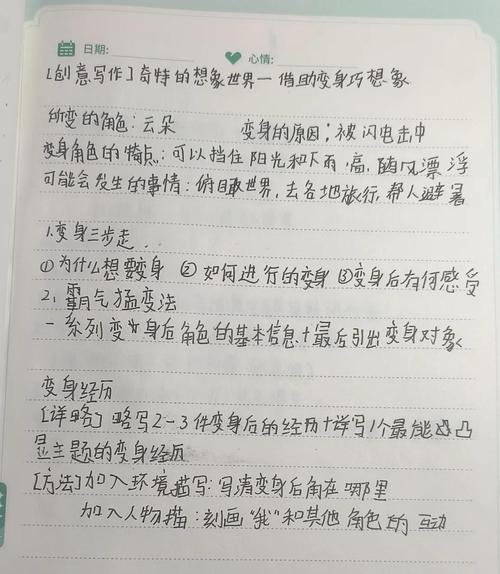 日期: 心情:
[创意写作]奇特的想象世界一借助变身巧想象
所变的角色:云朵 变身的原因:被闪电击中
变身角色的特点:可以挡住阳光和下雨,高,随风漂浮
可能会发生的事情:俯瞰世界,去各地旅行,帮人避暑
1.变身三步走...
①为什么想要变身 ②如何进行的变身 ③变身后有何感受
2,霸气猛变法
一系列变身后角色的基本信息+最后引出变身对象
变身经历
[详略]略写2-3件变身后的经历+详写1个最能凸
显主题的变身经历
[方法]加入环境描写:写清变身后角在哪里
加入人物描:刻画“我”和其他角色的互动